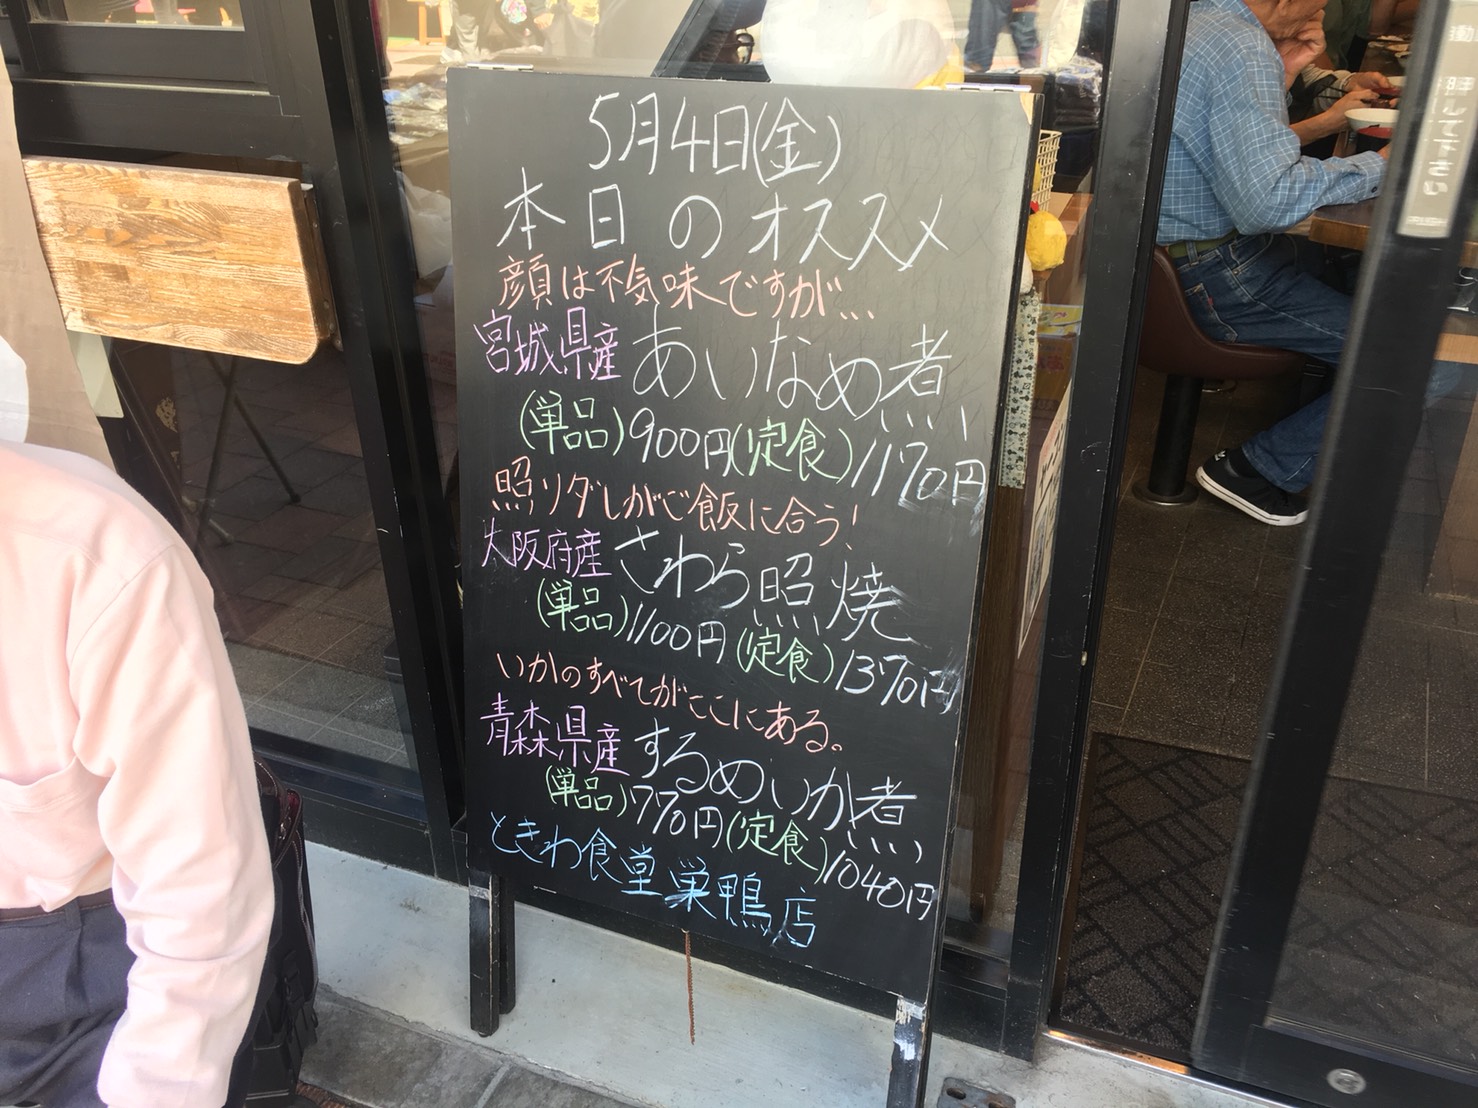 5月4日(金)
本日のオススメ
顔は不気味ですが...
宮城県産 あいなめ煮
(単品)900円(定食)1170円
照りダレがご飯に合う!
大阪府産 さわら照焼
(単品)1100円(定食)1370円
いかのすべてがここにある。
青森県産 するめいか煮
(単品)770円(定食)1040円
ときわ食堂巣鴨店